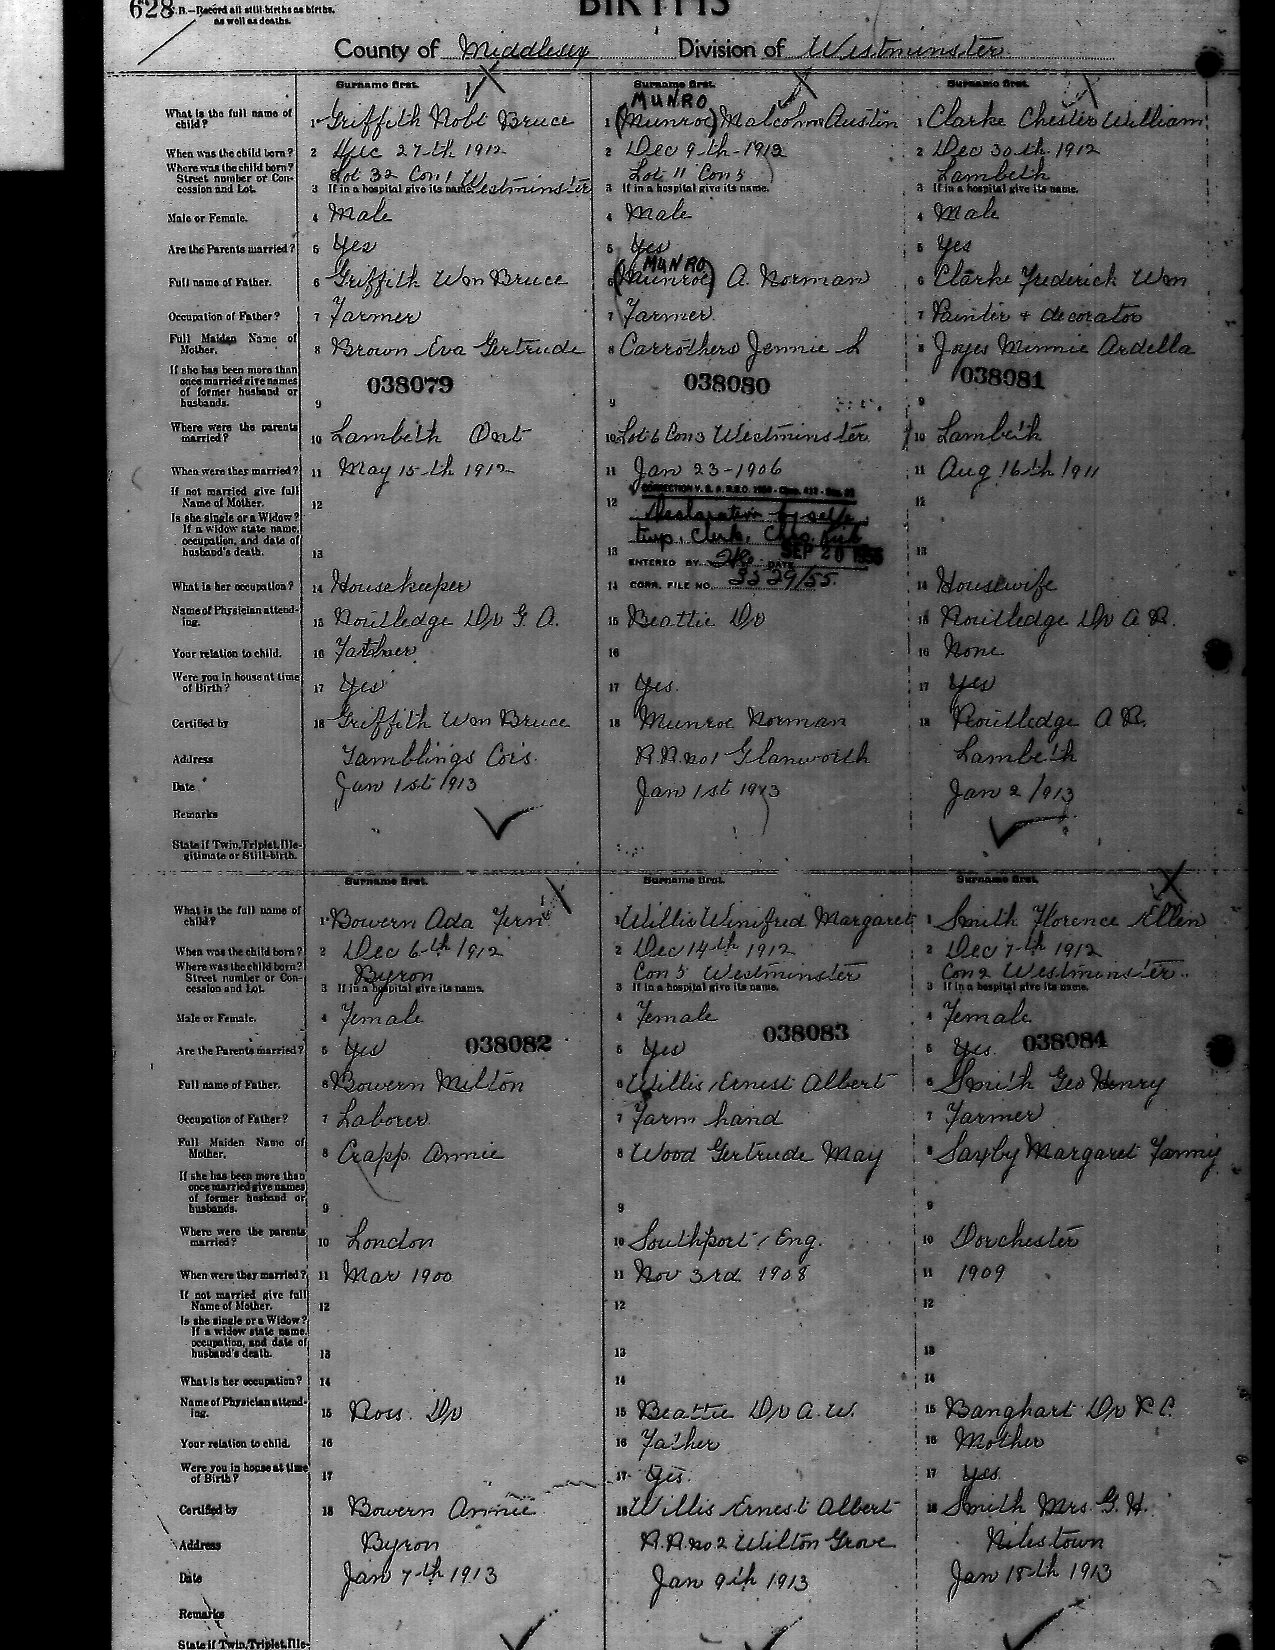 628
N.B.—Record all still-births as births, as well as deaths.
BIRTHS
County of Middlesex Division of Westminster
Surname first. Surname first. Surname first.
MUNRO
What is the full name of child? 1 Griffith Robt Bruce 1 (Munroe) Malcolm Austin 1 Clarke Chester William
When was the child born? 2 Dec 27th 1912 2 Dec 9th-1912 2 Dec 30th 1912
Where was the child born? Street number or Concession and Lot. Lot 32 Con 1 Westminster Lot 11 Con 5 Lambeth
3 If in a hospital give its name. 3 If in a hospital give its name. 3 If in a hospital give its name.
Male or Female. 4 Male 4 Male 4 Male
Are the Parents married? 5 Yes 5 Yes 5 Yes
MUNRO
Full name of Father. 6 Griffith Wm Bruce 6 (Munroe) A. Norman 6 Clarke Frederick Wm
Occupation of Father? 7 Farmer 7 Farmer 7 Painter + decorator
Full Maiden Name of Mother. 8 Brown Eva Gertrude 8 Carrothers Jennie L 8 Joyes Minnie Ardella
If she has been more than once married give names of former husband or husbands. 9 038079 9 038080 9 038081
Where were the parents married? 10 Lambeth Ont 10 Lot 6 Con 3 Westminster 10 Lambeth
When were they married? 11 May 15th 1912 11 Jan 23-1906 11 Aug 16th 1911
If not married give full Name of Mother. 12 12 12
Declaration by self
Is she single or a Widow? If a widow state name, occupation, and date of husband's death. 13 13 13
twp. Clerk, Chas.
SEP 20 1955
ENTERED BY DATE
What is her occupation? 14 Housekeeper 14 CORR. FILE NO. 3529/55 14 Housewife
Name of Physician attending. 15 Routledge Dr G. A. 15 Beattie Dr 15 Routledge Dr A R.
Your relation to child. 16 Father 16 16 None
Were you in house at time of Birth? 17 Yes 17 Yes. 17 Yes
Certified by 18 Griffith Wm Bruce 18 Munroe Norman 18 Routledge A R.
Address Tamblings Cors. R.R. no 1 Glanworth Lambeth
Date Jan 1st 1913 Jan 1st 1913 Jan 2/1913
Remarks
State if Twin, Triplet, Illegitimate or Still-birth.
Surname first. Surname first. Surname first.
What is the full name of child? 1 Bowern Ada Fern 1 Willis Winifred Margaret 1 Smith Florence Ellen
When was the child born? 2 Dec 6th 1912 2 Dec 14th 1912 2 Dec 7th 1912
Where was the child born? Street number or Concession and Lot. Byron Con 5 Westminster Con 2 Westminster
3 If in a hospital give its name. 3 If in a hospital give its name. 3 If in a hospital give its name.
Male or Female. 4 Female 4 Female 4 Female
Are the Parents married? 5 Yes 038082 5 Yes 038083 5 Yes. 038084
Full name of Father. 6 Bowern Milton 6 Willis Ernest Albert 6 Smith Geo Henry
Occupation of Father? 7 Laborer 7 Farm hand 7 Farmer
Full Maiden Name of Mother. 8 Crapp Annie 8 Wood Gertrude May 8 Saxby Margaret Fanny
If she has been more than once married give names of former husband or husbands. 9 9 9
Where were the parents married? 10 London 10 Southport, Eng. 10 Dorchester
When were they married? 11 Mar 1900 11 Nov 3rd 1908 11 1909
If not married give full Name of Mother. 12 12 12
Is she single or a Widow? If a widow state name, occupation, and date of husband's death. 13 13 13
What is her occupation? 14 14 14
Name of Physician attending. 15 Ross. Dr 15 Beattie Dr A. W. 15 Banghart Dr P. C.
Your relation to child. 16 16 Father 16 Mother
Were you in house at time of Birth? 17 17 Yes. 17 Yes
Certified by 18 Bowern Annie 18 Willis Ernest Albert 18 Smith Mrs. G. H.
Address Byron R.R. no 2 Wilton Grove Nilestown
Date Jan 7th 1913 Jan 9th 1913 Jan 18th 1913
Remarks
State if Twin, Triplet, Ille-